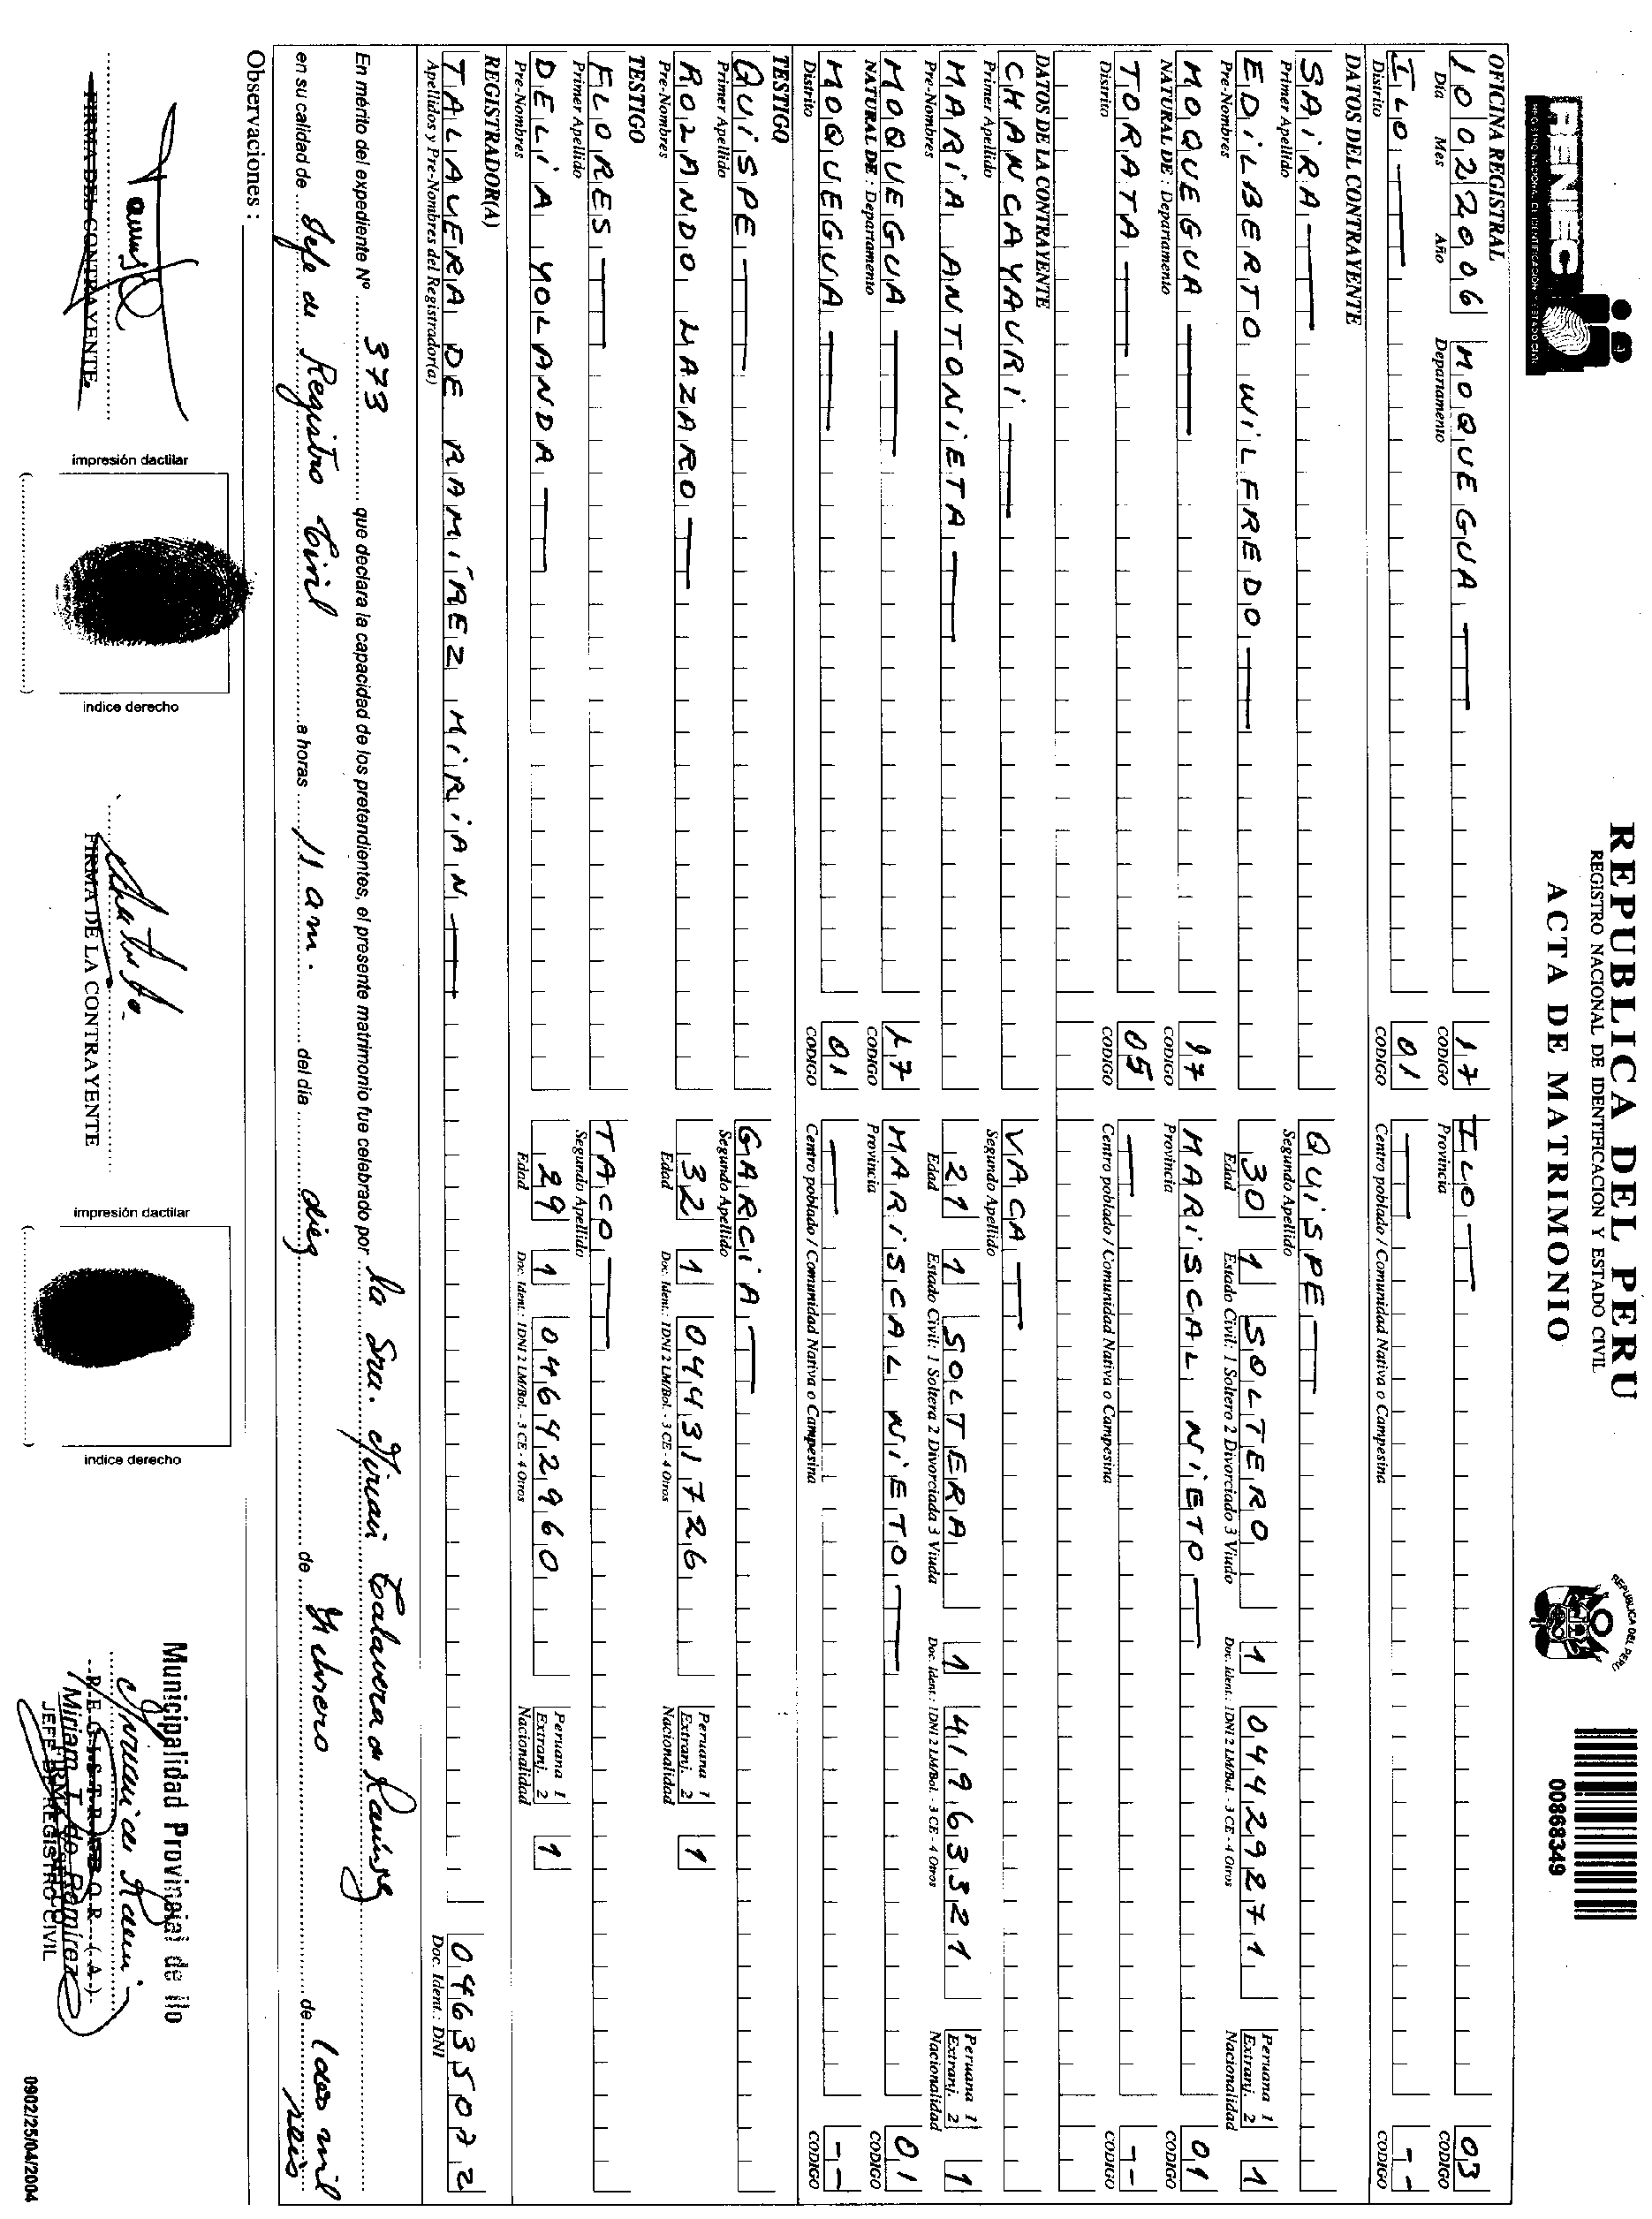 RENIEC
REGISTRO NACIONAL DE IDENTIFICACION Y ESTADO CIVIL
REPUBLICA DEL PERU
REGISTRO NACIONAL DE IDENTIFICACION Y ESTADO CIVIL
ACTA DE MATRIMONIO
REPUBLICA DEL PERU
00868349
OFICINA REGISTRAL
10 02 2006 MOQUEGUA 17 ILO 03
Día Mes Año Departamento CODIGO Provincia CODIGO
ILO 01 --
Distrito CODIGO Centro poblado / Comunidad Nativa o Campesina CODIGO
DATOS DEL CONTRAYENTE
SAIRA QUISPE
Primer Apellido Segundo Apellido
EDILBERTO WILFREDO 30 1 SOLTERO 1 04429871 Peruana 1 Extranj. 2 1
Pre-Nombres Edad Estado Civil: 1 Soltero 2 Divorciado 3 Viudo Doc. Ident.: 1DNI 2 LM/Bol. - 3 CE - 4 Otros Nacionalidad
MOQUEGUA 17 MARISCAL NIETO 01
NATURAL DE : Departamento CODIGO Provincia CODIGO
TORATA 05 --
Distrito CODIGO Centro poblado / Comunidad Nativa o Campesina CODIGO
DATOS DE LA CONTRAYENTE
CHANCAYAURI VACA
Primer Apellido Segundo Apellido
MARIA ANTONIETA 21 1 SOLTERA 1 41963321 Peruana 1 Extranj. 2 1
Pre-Nombres Edad Estado Civil: 1 Soltera 2 Divorciada 3 Viuda Doc. Ident.: 1DNI 2 LM/Bol. - 3 CE - 4 Otros Nacionalidad
MOQUEGUA 17 MARISCAL NIETO 01
NATURAL DE : Departamento CODIGO Provincia CODIGO
MOQUEGUA 01 --
Distrito CODIGO Centro poblado / Comunidad Nativa o Campesina CODIGO
TESTIGO
QUISPE GARCIA
Primer Apellido Segundo Apellido
ROLANDO NAZARO 32 1 04431726 Peruana 1 Extranj. 2 1
Pre-Nombres Edad Doc. Ident.: 1DNI 2 LM/Bol. - 3 CE - 4 Otros Nacionalidad
TESTIGO
FLORES TACO
Primer Apellido Segundo Apellido
DELIA YOLANDA 29 1 04642960 Peruana 1 Extranj. 2 1
Pre-Nombres Edad Doc. Ident.: 1DNI 2 LM/Bol. - 3 CE - 4 Otros Nacionalidad
REGISTRADOR(A)
TALAVERA DE RAMIREZ MIRIAN 04635072
Apellidos y Pre-Nombres del Registrador(a) Doc. Ident.: DNI
En mérito del expediente Nº 373 que declara la capacidad de los pretendientes, el presente matrimonio fue celebrado por la Sra. Mirian Talavera de Ramírez
en su calidad de Jefe de Registro Civil a horas 11 am. del día diez de Febrero de dos mil seis
Observaciones :
FIRMA DEL CONTRAYENTE
impresión dactilar
indice derecho
FIRMA DE LA CONTRAYENTE
impresión dactilar
indice derecho
Municipalidad Provincial de Ilo
REGISTRADOR (A)
Miriam T. de Ramírez
JEFE DE REGISTRO CIVIL
0902/25/04/2004